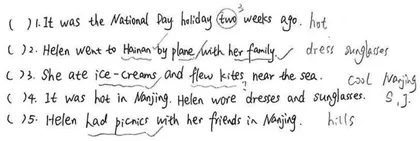 ( )1. It was the National Day holiday two weeks ago. hot
3
( )2. Helen went to Hainan by plane with her family. dress sunglasses
( )3. She ate ice-creams and flew kites near the sea. cool Nanjing
?
( )4. It was hot in Nanjing. Helen wore dresses and sunglasses. S, J.
( )5. Helen had picnics with her friends in Nanjing. hills